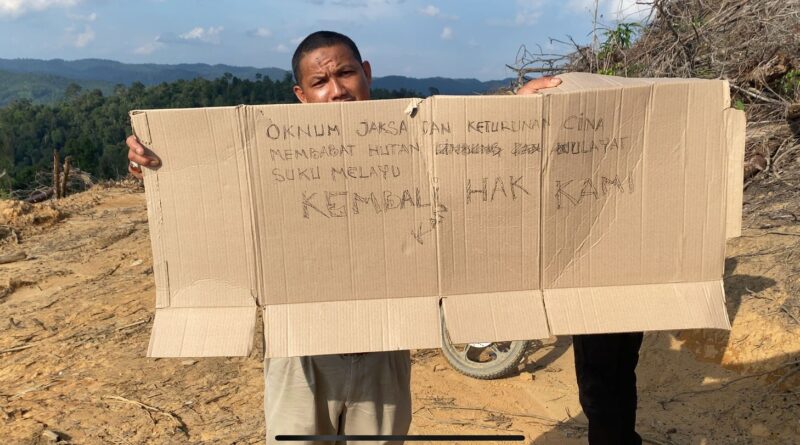 OKNUM JAKSA DAN KETURUNAN CINA
MEMBABAT HUTAN LINDUNG DAN ULAYAT
SUKU MELAYU
KEMBALI HAK KAMI